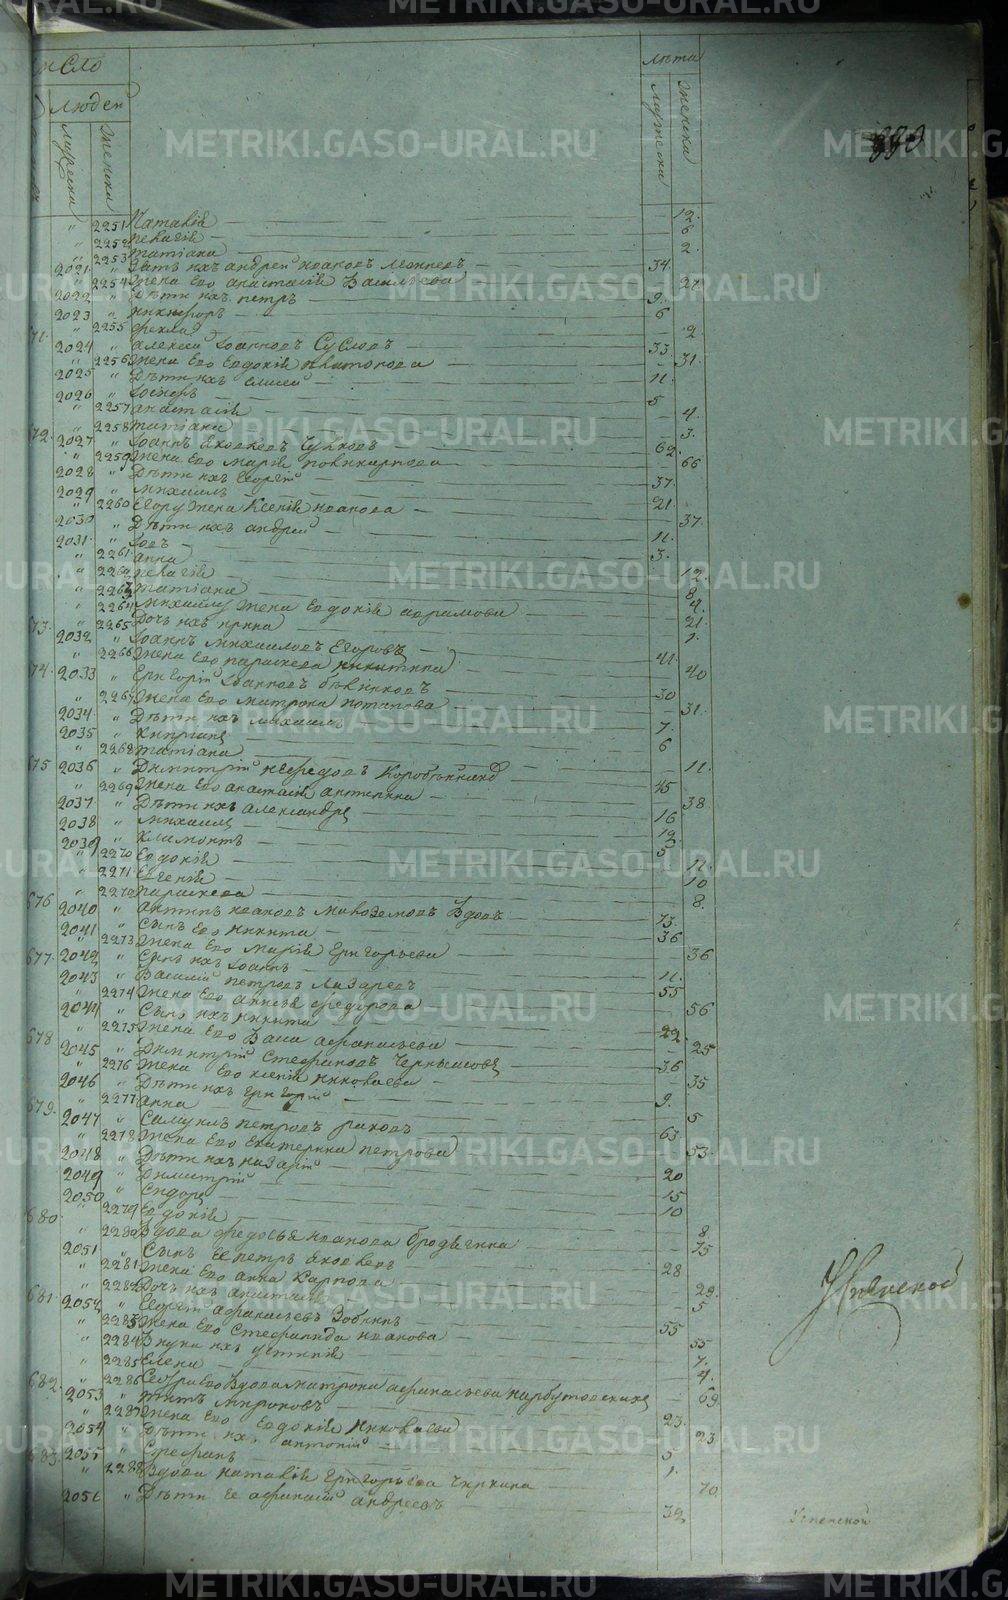 число лѣта
людей
мужеска женска мужеска женска
330
" 2251 Наталія — 12.
" 2252 Пелагія — 6
" 2253 татіана — 2
2021 " Зять ихъ андрей ивановъ — 34.
" 2254 жена его анастасія Васильева — 27
2022 " Дѣти ихъ петръ — 9.
2023 " никифоръ — 6
" 2255 фекла — 2
71. 2024 " алексей Іоанновъ Сусловъ — 33.
" 2256 жена его Евдокія — 31.
2025 " Дѣти ихъ — 11.
2026 " — 5
" 2257 анастасія — 4.
" 2258 татіана — 3.
72. 2027 " Іоаннъ Яковлевъ Чулковъ — 62.
" 2259 жена его Марія поликарпова — 66
2028 " Дѣти ихъ Георгій — 37.
2029 " михаилъ — 21.
" 2260 Егору жена Ксенія иванова — 37.
2030 " Дѣти ихъ андрей — 11.
2031 " — 3.
" 2261 анна — 12.
" 2262 пелагія — 8
" 2263 татіана — 4.
" 2264 михайлу жена евдокія аврамова — 21
" 2265 Дочь ихъ ирина — 1.
673. 2032 " Іоаннъ михаиловъ Егоровъ — 41.
" 2266 жена его параскева никитина — 40
674. 2033 " Григорій Іоанновъ — 30
" 2267 жена его матрона потапова — 31.
2034 " Дѣти ихъ михаилъ — 7.
2035 " Кипріанъ — 6
" 2268 татіана — 11.
675 2036 " Димитрій Коробейниковъ — 45
" 2269 жена его анастасія антипина — 38
2037 " Дѣти ихъ александръ — 16
2038 " михаилъ — 12
2039 " климентъ — 5
" 2270 евдокія — 11.
" 2271 Евгенія — 10
" 2272 параскева — 8.
676 2040 " антипъ ивановъ Вдовъ — 73.
2041 " Сынъ его никита — 36
" 2273 жена его марія григорьева — 36
2042 " Сынъ ихъ Іоаннъ — 11.
677. 2043 " Василій петровъ Лазаревъ — 55
" 2274 жена его федорова — 56
2044 " Сынъ ихъ никита — 22
" 2275 жена его Васа афанасьева — 25
678 2045 " Димитрій Стефановъ Чернышовъ — 36
" 2276 жена его ксенія николаева — 35
2046 " Дѣти ихъ григорій — 9.
" 2277 анна — 5
679. 2047 " Самуилъ петровъ раковъ — 63.
" 2278 жена его екатерина петрова — 53.
2048 " Дѣти ихъ назарій — 20
2049 " Димитрій — 15
2050 " Сидоръ — 10
" 2279 евдокія — 8
680. " 2280 Вдова федосья иванова бродягина — 75
2051 " Сынъ ее петръ яковлевъ — 28
" 2281 жена его анна карпова — 29.
" 2282 Дочь ихъ анастасія — 5
681. 2052 " Георгій афанасьевъ Зобнинъ — 55
" 2283 жена его Стефанида иванова — 55
" 2284 Внуки ихъ устинія — 7.
" 2285 елена — 4.
" 2286 Вдова матрона афанасьева — 69
682. 2053 " титъ мироновъ — 23.
" 2287 жена его евдокія николаева — 23
2054 " Дѣти ихъ антоній — 5
2055 " Стефанъ — 1.
683. " 2288 Вдова наталія григорьева Чиркина — 70
2056 " Дѣти ее афанасій андреевъ — 32
Успенской
Успенской
METRIKI.GASO-URAL.RU